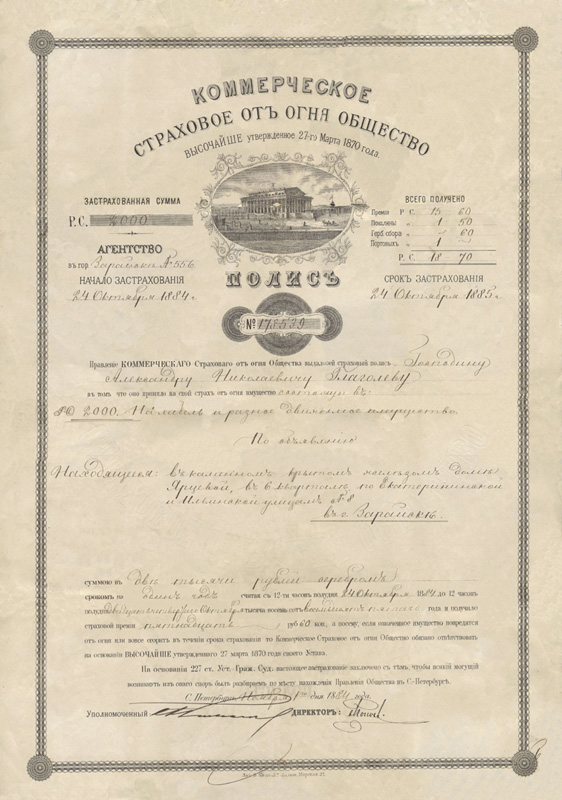 КОММЕРЧЕСКОЕ
СТРАХОВОЕ ОТЪ ОГНЯ ОБЩЕСТВО
ВЫСОЧАЙШЕ утвержденное 27-го Марта 1870 года.
ЗАСТРАХОВАННАЯ СУММА
Р.С. 2000
АГЕНТСТВО
въ гор. Зарайскѣ № 556
НАЧАЛО ЗАСТРАХОВАНІЯ
24 Октября 1884 г.
ВСЕГО ПОЛУЧЕНО
Премія Р С. 15 60
Пошлины " 1 50
Герб. сбора " — 60
Портовыхъ " 1 —
Р С. 18 70
СРОКЪ ЗАСТРАХОВАНІЯ
24 Октября 1885 г.
ПОЛИСЪ
№ 178539
Правленіе КОММЕРЧЕСКАГО Страховаго отъ огня Общества выдало сей страховый полисъ Господину
Александру Николаевичу Глаголеву
въ томъ что оно приняло на свой страхъ отъ огня имущество состоящее въ:
Р.С. 2000. На мебель и разное движимое имущество.
По объявленію
Находящемся: въ каменномъ крытомъ желѣзомъ домѣ
Ярцевой, въ 6 кварталѣ, по Екатерининской
и Ильинской улицамъ № 8
въ г. Зарайскѣ.
суммою въ двѣ тысячи рублей серебромъ
срокомъ на одинъ годъ считая съ 12-ти часовъ полудня 24 Октября 1884 до 12 часовъ
полудня двадцать четвертаго Октября тысяча восемьсотъ восемьдесятъ пятаго года и получило
страховой преміи пятнадцать руб 60 коп, а посему, если означенное имущество повредится
отъ огня или вовсе сгоритъ въ теченіи срока страхованія то Коммерческое Страховое отъ огня Общество обязано отвѣтствовать
на основаніи ВЫСОЧАЙШЕ утвержденнаго 27 марта 1870 года своего Устава.
На основаніи 227 ст. Уст. Граж. Суд: настоящее застрахованіе заключено съ тѣмъ, чтобы всякій могущій
возникнуть изъ сего споръ былъ разбираемъ по мѣсту нахожденія Правленія Общества въ С-Петербургѣ.
С. Петербургъ, Ноября 1 дня 1884 года.
Уполномоченный ДИРЕКТОРЪ: